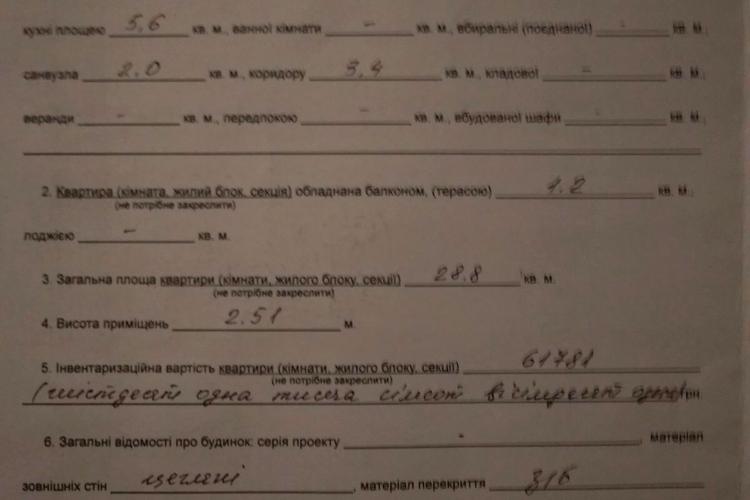 кухні площею 5,6 кв. м., ванної кімнати - кв. м., вбиральні (поєднаної) - кв. м.,
санвузла 2.0 кв. м., коридору 3,4 кв. м., кладової - кв. м.,
веранди - кв. м., передпокою - кв. м., вбудованої шафи - кв. м.
2. Квартира (кімната, жилий блок, секція) обладнана балконом, (терасою) 1.2 кв. м.,
(не потрібне закреслити)
лоджією - кв. м.
3. Загальна площа квартири (кімнати, жилого блоку, секції) 28.8 кв. м.
(не потрібне закреслити)
4. Висота приміщень 2.51 м.
5. Інвентаризаційна вартість квартири (кімнати, жилого блоку, секції) 61781
(не потрібне закреслити)
(шістдесят одна тисяча сімсот вісімдесят одна) грн.
6. Загальні відомості про будинок: серія проекту -, матеріал
зовнішніх стін цегляні, матеріал перекриття з/б